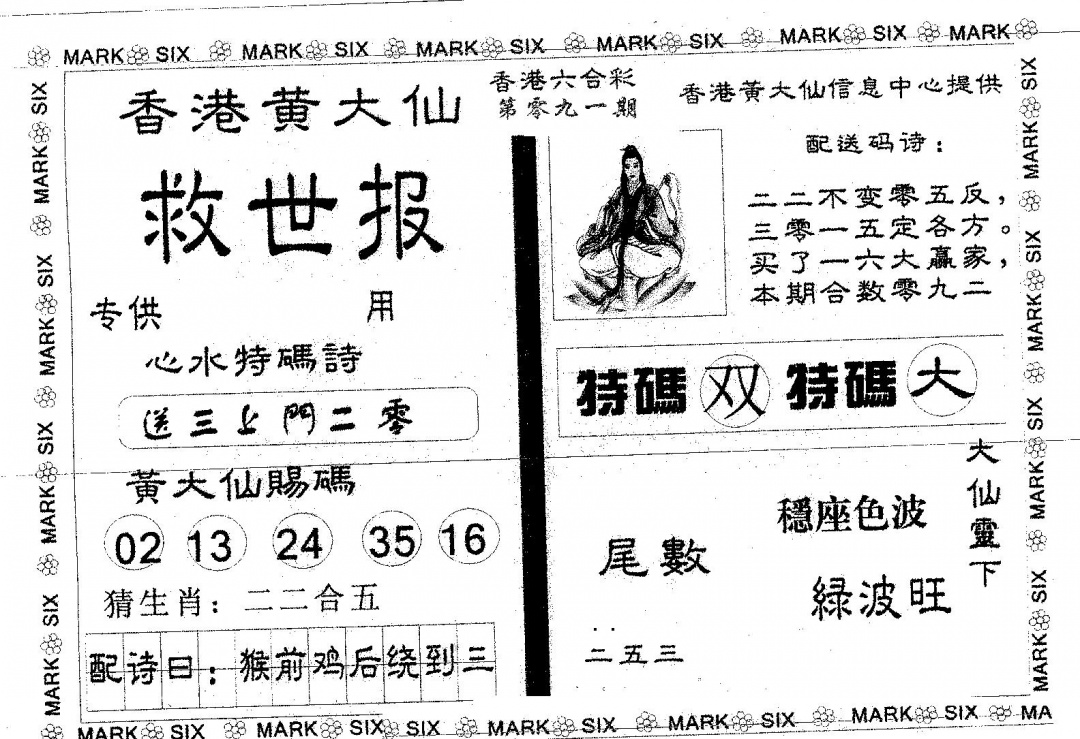 MARK SIX MARK SIX MARK SIX MARK SIX MARK SIX MARK
香港黄大仙
救世报
专供 用
心水特碼詩
送三上門二零
黄大仙賜碼
02 13 24 35 16
猜生肖：二二合五
配诗曰：猴前鸡后绕到三
香港六合彩
第零九一期
香港黄大仙信息中心提供
配送码诗：
二二不变零五反，
三零一五定各方。
买了一六大赢家，
本期合数零九二
特碼 双 特碼 大
尾數
二五三
穩座色波
緑波旺
大仙靈下
MARK SIX MARK SIX MARK SIX MARK SIX
MARK SIX MARK SIX MARK SIX MARK SIX
MARK SIX MARK SIX SIX MARK SIX MARK SIX MARK SIX MA